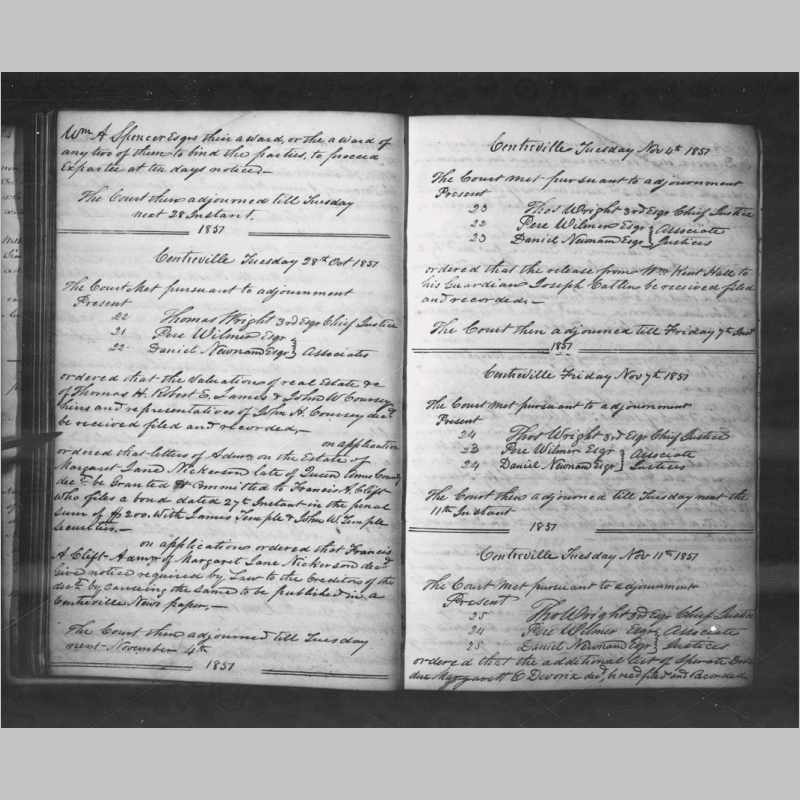 Wm A Spencer Esqrs their award, or the award of
any two of them to bind the parties, to proceed
Expartee at ten days notice.—
The Court then adjourned till Tuesday
next 28 Instant.
1851
Centreville Tuesday 28th Oct 1851
The Court Met pursuant to adjournment
Present
22 Thomas Wright 3rd Esqr Chief Justice
21 Pere Wilmer Esqr
22 Daniel Newnam Esqr } Associates
ordered that the Valuations of real Estate &c
of Thomas H. Robert E. James & John W Coursey
heirs and representatives of John H. Coursey decd
be received filed and recorded,—
on application
ordered that letters of Admn on the Estate of
Margaret Jane Nickerson late of Queen Anns County
decd be Granted & Committed to Francis A. Clift
who files a bond dated 27th Instant in the penal
sum of $200. With James Temple & John W. Temple
Securities.—
on application ordered that Francis
A Clift Admr of Margaret Jane Nickerson decd
Give notice required by Law to the Creditors of the
decd by Causing the Same to be published in a
Centreville News paper,—
The Court then adjourned till Tuesday
next November 4th
1851
Centreville Tuesday Nov 4th 1851
The Court met pursuant to adjournment
Present
23 Thos Wright 3rd Esqr Chief Justice
22 Pere Wilmer Esqr } Associate
23 Daniel Newnam Esqr } Justices
ordered that the release from Wm Kent Hall to
his Guardian Joseph Catlin be received filed
and recorded.—
The Court then adjourned till Friday 7th Inst
1851
Centreville Friday Nov 7th 1851
The Court Met pursuant to adjournment
Present
24 Thos Wright 3rd Esqr Chief Justice
23 Pere Wilmer Esqr } Associate
24 Daniel Newnam Esqr } Justices
The Court then adjourned till Tuesday next the
11th Instant
1851
Centreville Tuesday Nov 11th 1851
The Court Met pursuant to adjournment
Present
25 Tho Wright 3rd Esqr Chief Justice
24 Pere Wilmer Esqr } Associate
25 Daniel Newnam Esqr } Justices
ordered that the additional list of Sperate Debts
due Margarett E Devorix decd, be recd filed and Recorded